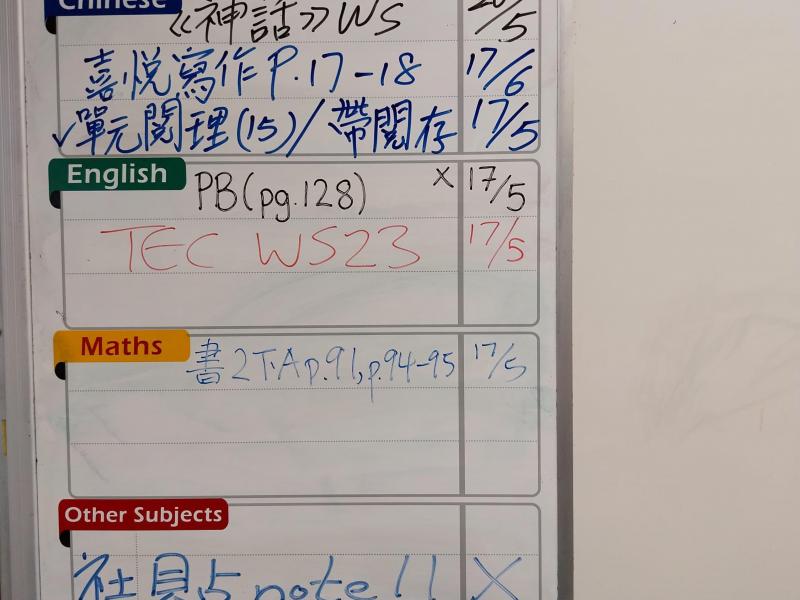 Chinese
《神話》WS 20/5
喜悅寫作 P.17-18 17/6
✓單元閱理(15)/帶閱存 17/5
English
PB(pg.128) x 17/5
TEC WS23 17/5
Maths
書2下A p.91, p.94-95 17/5
Other Subjects
note 11 X